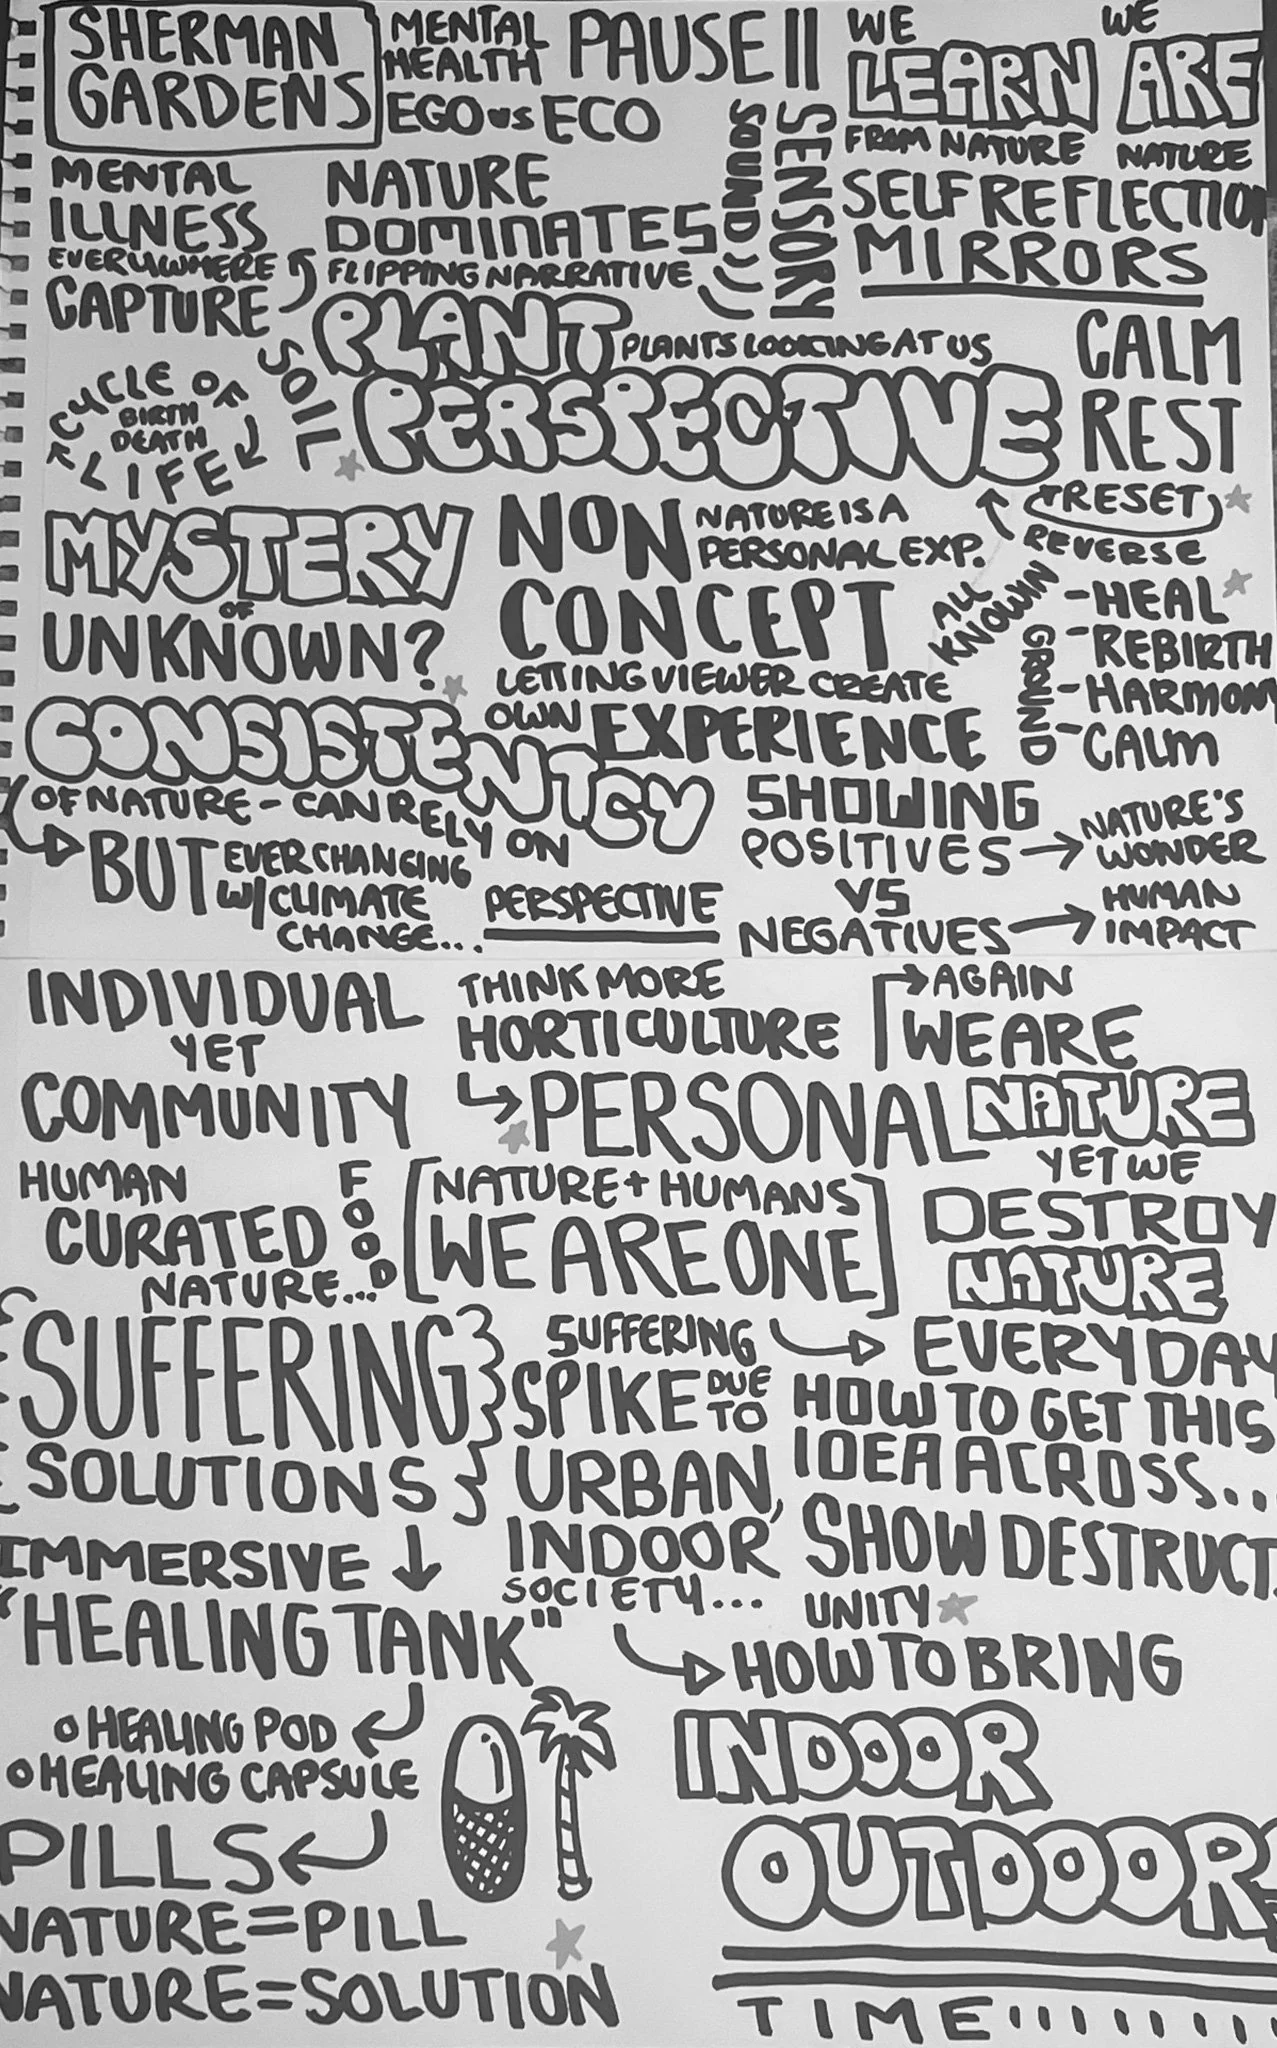 SHERMAN
GARDENS
MENTAL
HEALTH
EGO vs ECO
PAUSE ||
SOUND))
SENSORY
WE
LEARN
FROM NATURE
WE
ARE
NATURE
MENTAL
ILLNESS
EVERYWHERE
CAPTURE
NATURE
DOMINATES
FLIPPING NARRATIVE
SELF REFLECTION
MIRRORS
PLANT
PLANTS LOOKING AT US
PERSPECTIVE
SOIL
CYCLE OF
BIRTH
DEATH
LIFE
CALM
REST
+RESET
REVERSE
MYSTERY
OF
UNKNOWN?
NON
CONCEPT
NATURE IS A
PERSONAL EXP.
ALL
KNOWIN
GROUND
-HEAL
-REBIRTH
-HARMON
-CALM
LETTING VIEWER CREATE
OWN EXPERIENCE
CONSISTENTCY
OF NATURE - CAN RELY ON
BUT EVERCHANGING
W/CLIMATE
CHANGE...
PERSPECTIVE
SHOWING
POSITIVES → NATURE'S
WONDER
VS
NEGATIVES → HUMAN
IMPACT
INDIVIDUAL
YET
COMMUNITY
THINK MORE
HORTICULTURE
PERSONAL
AGAIN
WE ARE
NATURE
YET WE
DESTROY
NATURE
HUMAN
CURATED
NATURE...
FOOD
[NATURE + HUMANS
WE ARE ONE]
{SUFFERING}
SOLUTIONS}
SUFFERING
SPIKE DUE
TO
URBAN,
INDOOR
SOCIETY...
EVERYDAY
HOW TO GET THIS
IDEA ACROSS...
SHOW DESTRUCT.
UNITY
IMMERSIVE ↓
"HEALING TANK"
HOW TO BRING
INDOOR
OUTDOORS
TIME
o HEALING POD
o HEALING CAPSULE
PILLS
NATURE=PILL
NATURE=SOLUTION